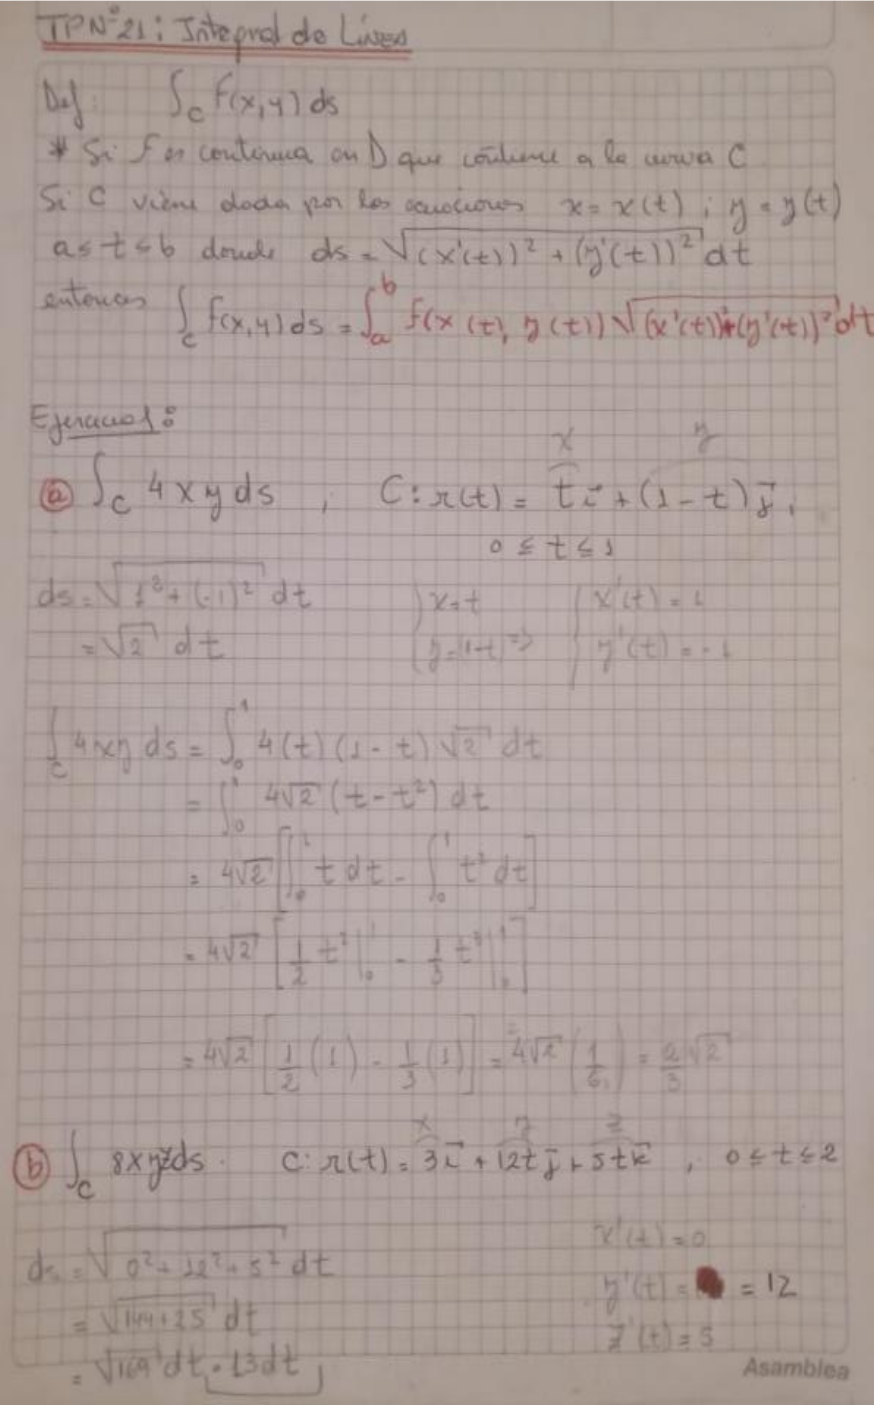 TP Nº 21: Integral de Línea
Def: ∫_C f(x,y) ds
* Si f es continua en D que contiene a la curva C
Si C viene dada por las ecuaciones x = x(t) ; y = y(t)
a ≤ t ≤ b donde ds = √((x'(t))² + (y'(t))²) dt
entonces ∫_C f(x,y) ds = ∫_a^b f(x(t), y(t)) √((x'(t))² + (y'(t))²) dt
Ejercicio 1:
x y
(a) ∫_C 4xy ds , C: r(t) = t i + (1 - t) j ,
0 ≤ t ≤ 1
ds = √(1² + (-1)²) dt { x = t { x'(t) = 1
= √2 dt { y = 1-t => { y'(t) = -1
∫_C 4xy ds = ∫_0^1 4(t)(1 - t) √2 dt
= ∫_0^1 4√2 (t - t²) dt
= 4√2 [∫_0^1 t dt - ∫_0^1 t² dt]
= 4√2 [1/2 t² |_0^1 - 1/3 t³ |_0^1]
= 4√2 [1/2 (1) - 1/3 (1)] = 4√2 (1/6) = 2/3 √2
x y z
(b) ∫_C 8xyz ds . C: r(t) = 3 i + 12t j + 5t k , 0 ≤ t ≤ 2
ds = √(0² + 12² + 5²) dt x'(t) = 0
= √(144+25) dt y'(t) = = 12
= √169 dt = 13 dt z'(t) = 5
Asamblea